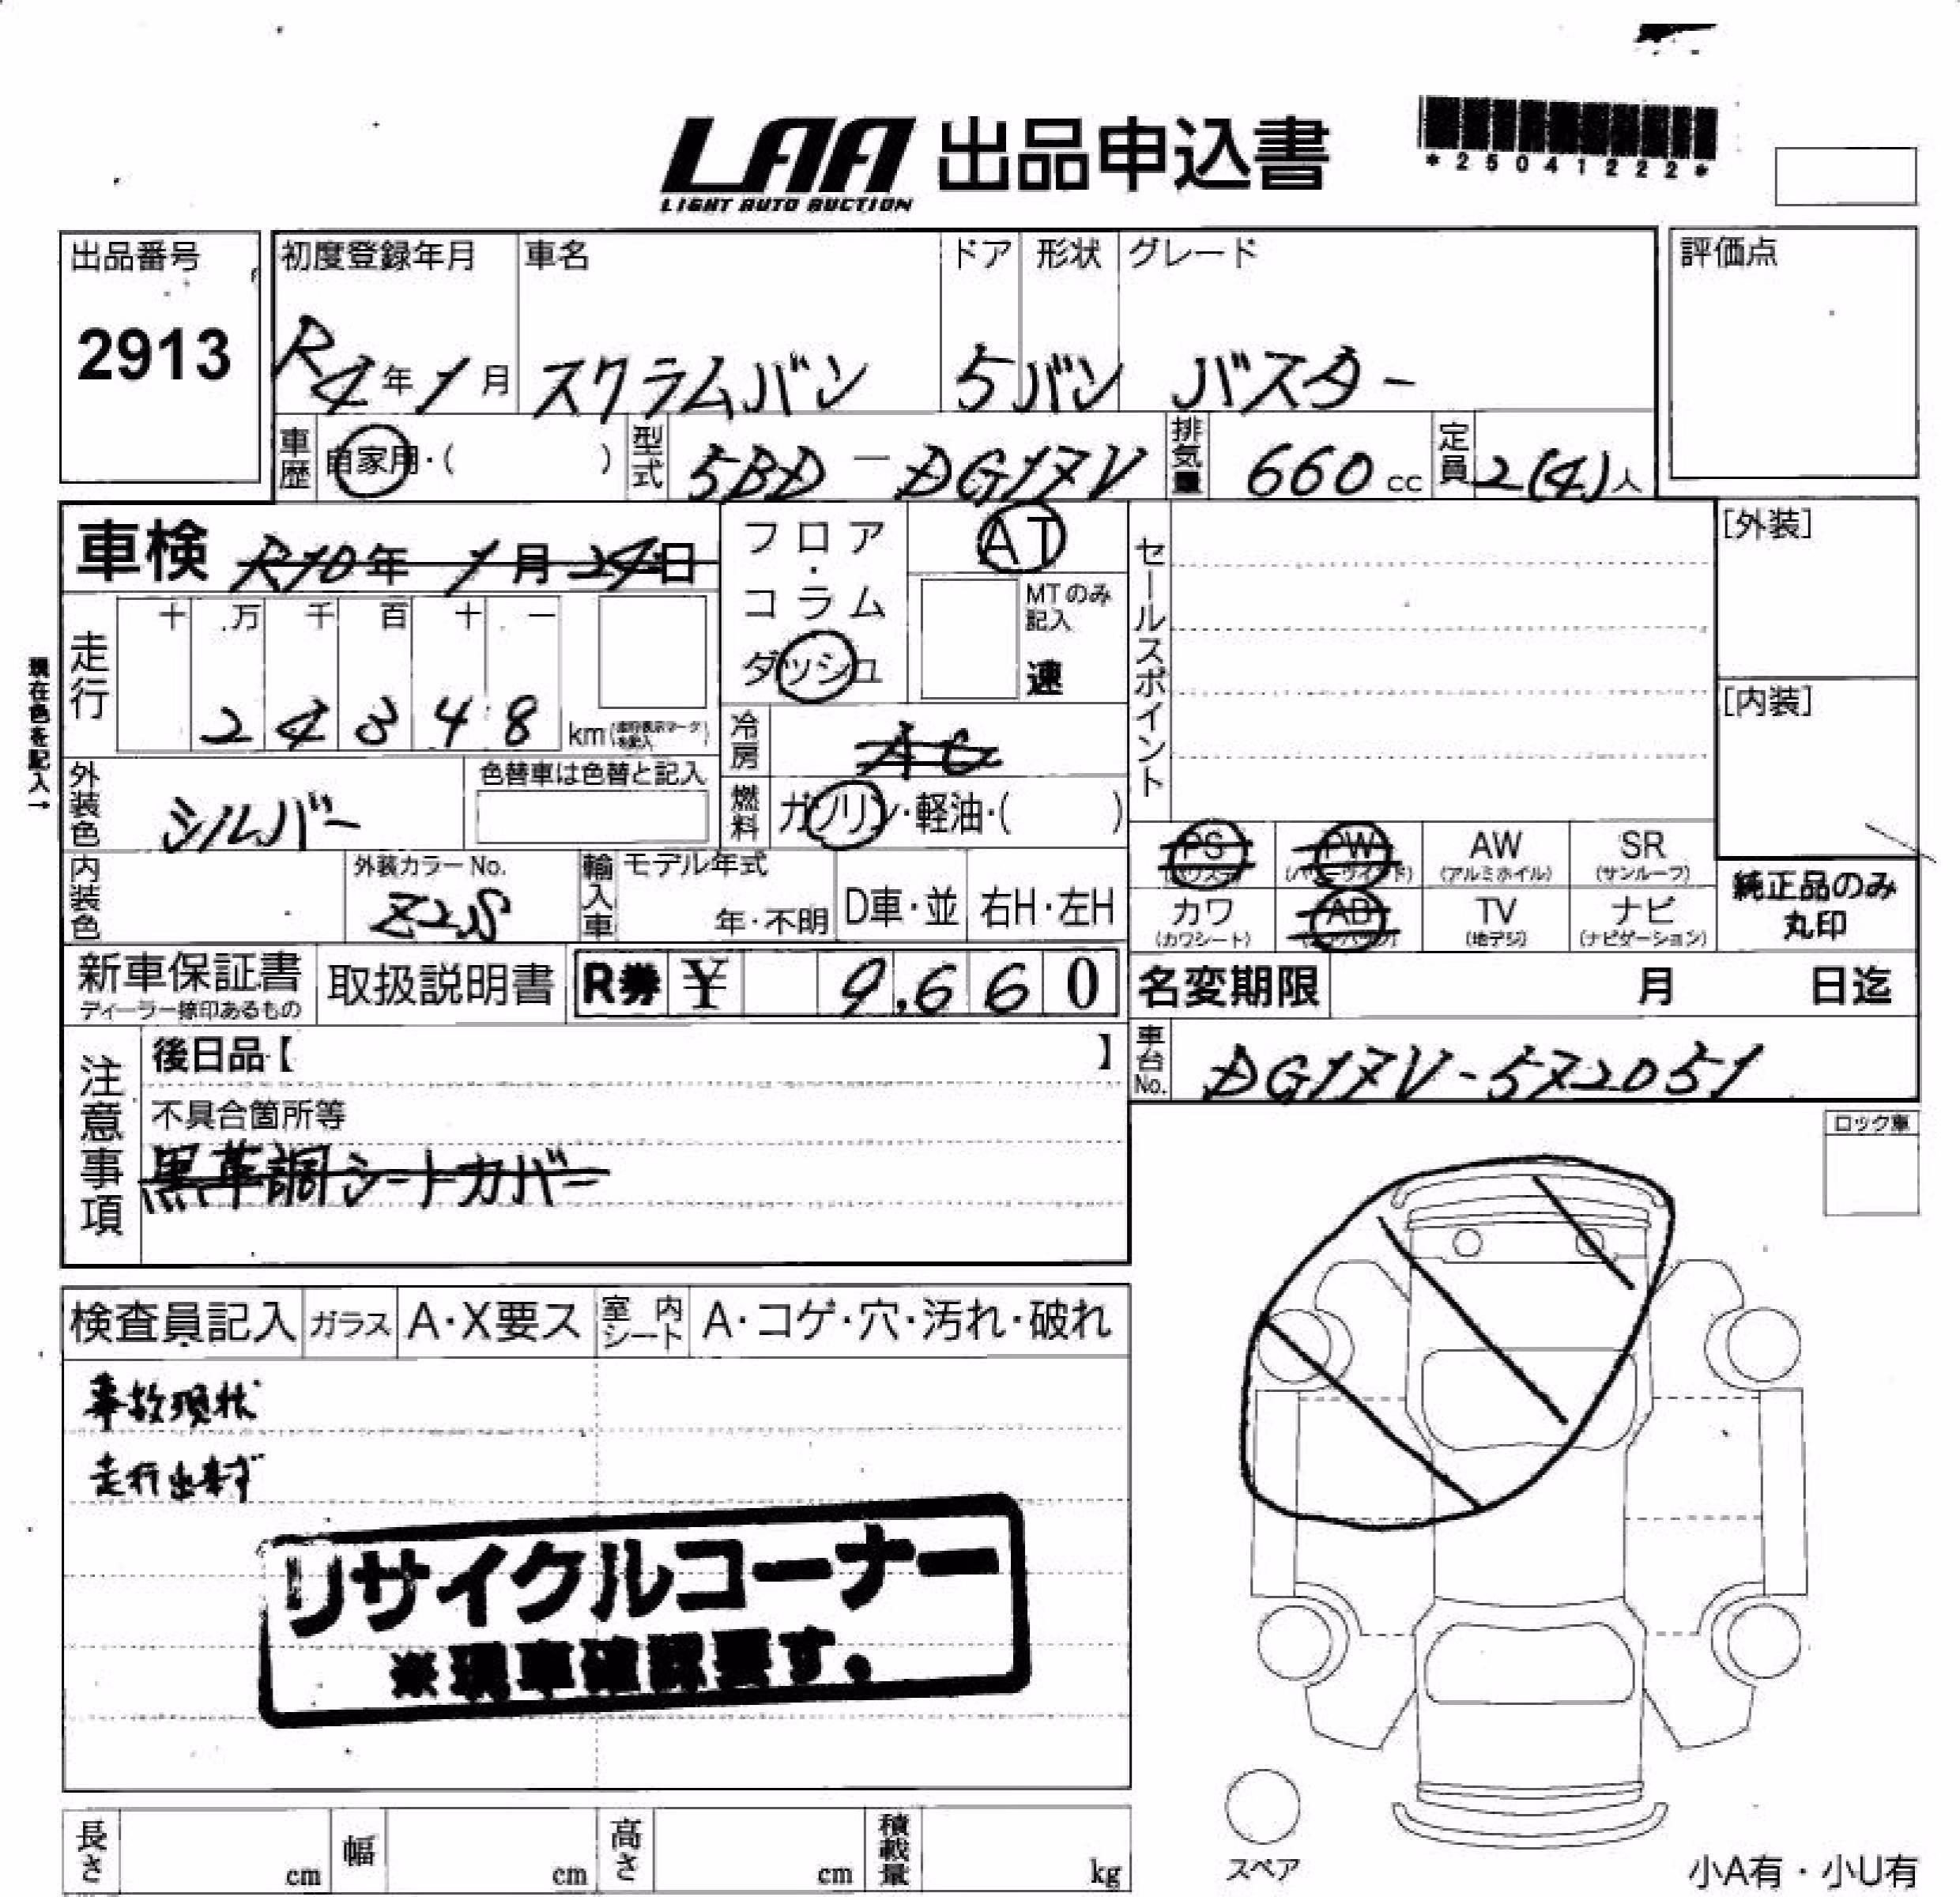 LAA 出品申込書
LIGHT AUTO AUCTION
*25041222*
出品番号
2913
初度登録年月 車名 ドア 形状 グレード
R4年1月 スクラムバン 5 バン バスター
評価点
車歴 自家用・( ) 型式 5BD-DG17V 排気量 660cc 定員 2(4)人
車検 R10年1月24日
フロア・コラム ダッシュ
AT
MTのみ記入
速
セールスポイント
[外装]
[内装]
現在色を記入→
走行 十 万 千 百 十 一
24348 km
冷房 AC
外装色 シルバー 色替車は色替と記入
燃料 ガソリン・軽油・( )
PS PW AW SR
(パワステ) (パワーウインド) (アルミホイル) (サンルーフ)
カワ AB TV ナビ
(カワシート) (エアバック) (地デジ) (ナビゲーション)
純正品のみ
丸印
内装色 外装カラーNo. Z2S 輸入車 モデル年式 年・不明 D車・並 右H・左H
新車保証書 取扱説明書 R券 ¥ 9,660
ディーラー捺印あるもの
名変期限 月 日迄
車台No. DG17V-572051
注意事項
後日品【 】
不具合箇所等
黒革調シートカバー
ロック車
検査員記入 ガラス A・X要ス 室内シート A・コゲ・穴・汚れ・破れ
事故現状
走行出来ず
リサイクルコーナー
※現車確認要す。
スペア
長さ cm 幅 cm 高さ cm 積載量 kg
小A有・小U有